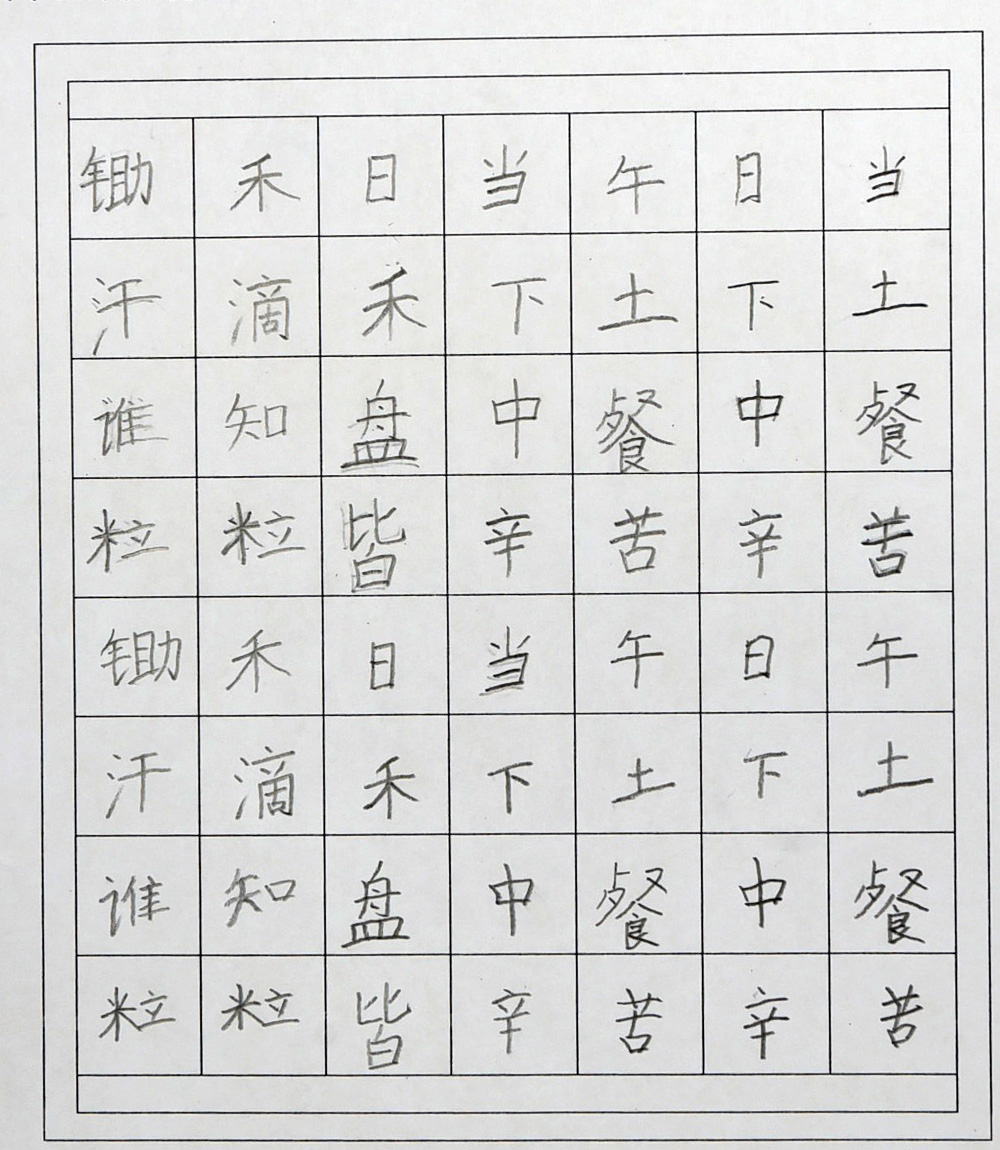 锄禾日当午日当
汗滴禾下土下土
谁知盘中餐中餐
粒粒皆辛苦辛苦
锄禾日当午日午
汗滴禾下土下土
谁知盘中餐中餐
粒粒皆辛苦辛苦